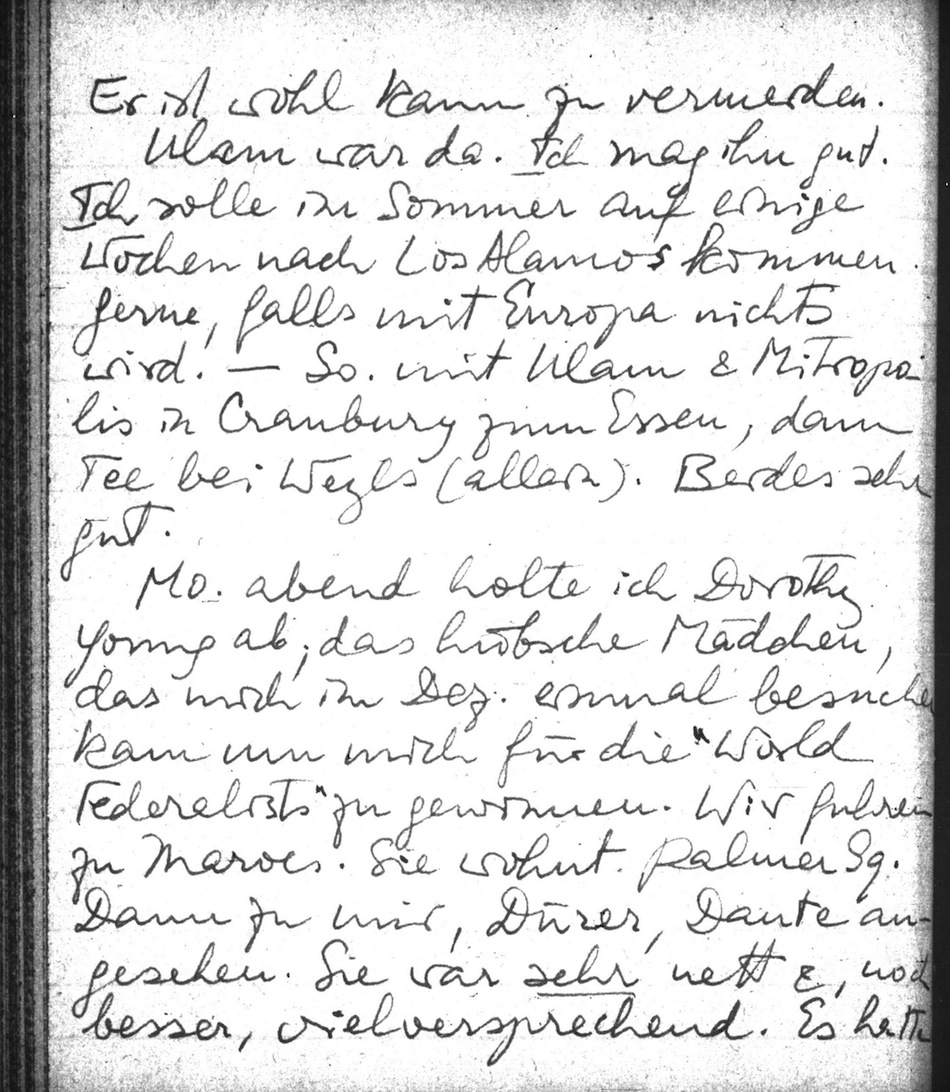 Er ist wohl kaum zu vermeiden.
Ulam war da. Ich mag ihn gut.
Ich solle im Sommer auf einige
Wochen nach Los Alamos kommen.
gerne, falls mit Europa nichts
wird. — So. mit Ulam & Mitropo
lis in Cranbury zum Essen, dann
Tee bei Weyls (allein). Beides sehr
gut.
Mo. abend holte ich Dorothy
Young ab; das hübsche Mädchen,
das mich im Dez. einmal besuche
kam um mich für die "World
Federalists" zu gewinnen. Wir fuhren
zu Marows. Sie wohnt Palmer Sq.
Dann zu mir, Dürer, Dante an-
gesehen. Sie war sehr nett &, noch
besser, vielversprechend. Es hatte